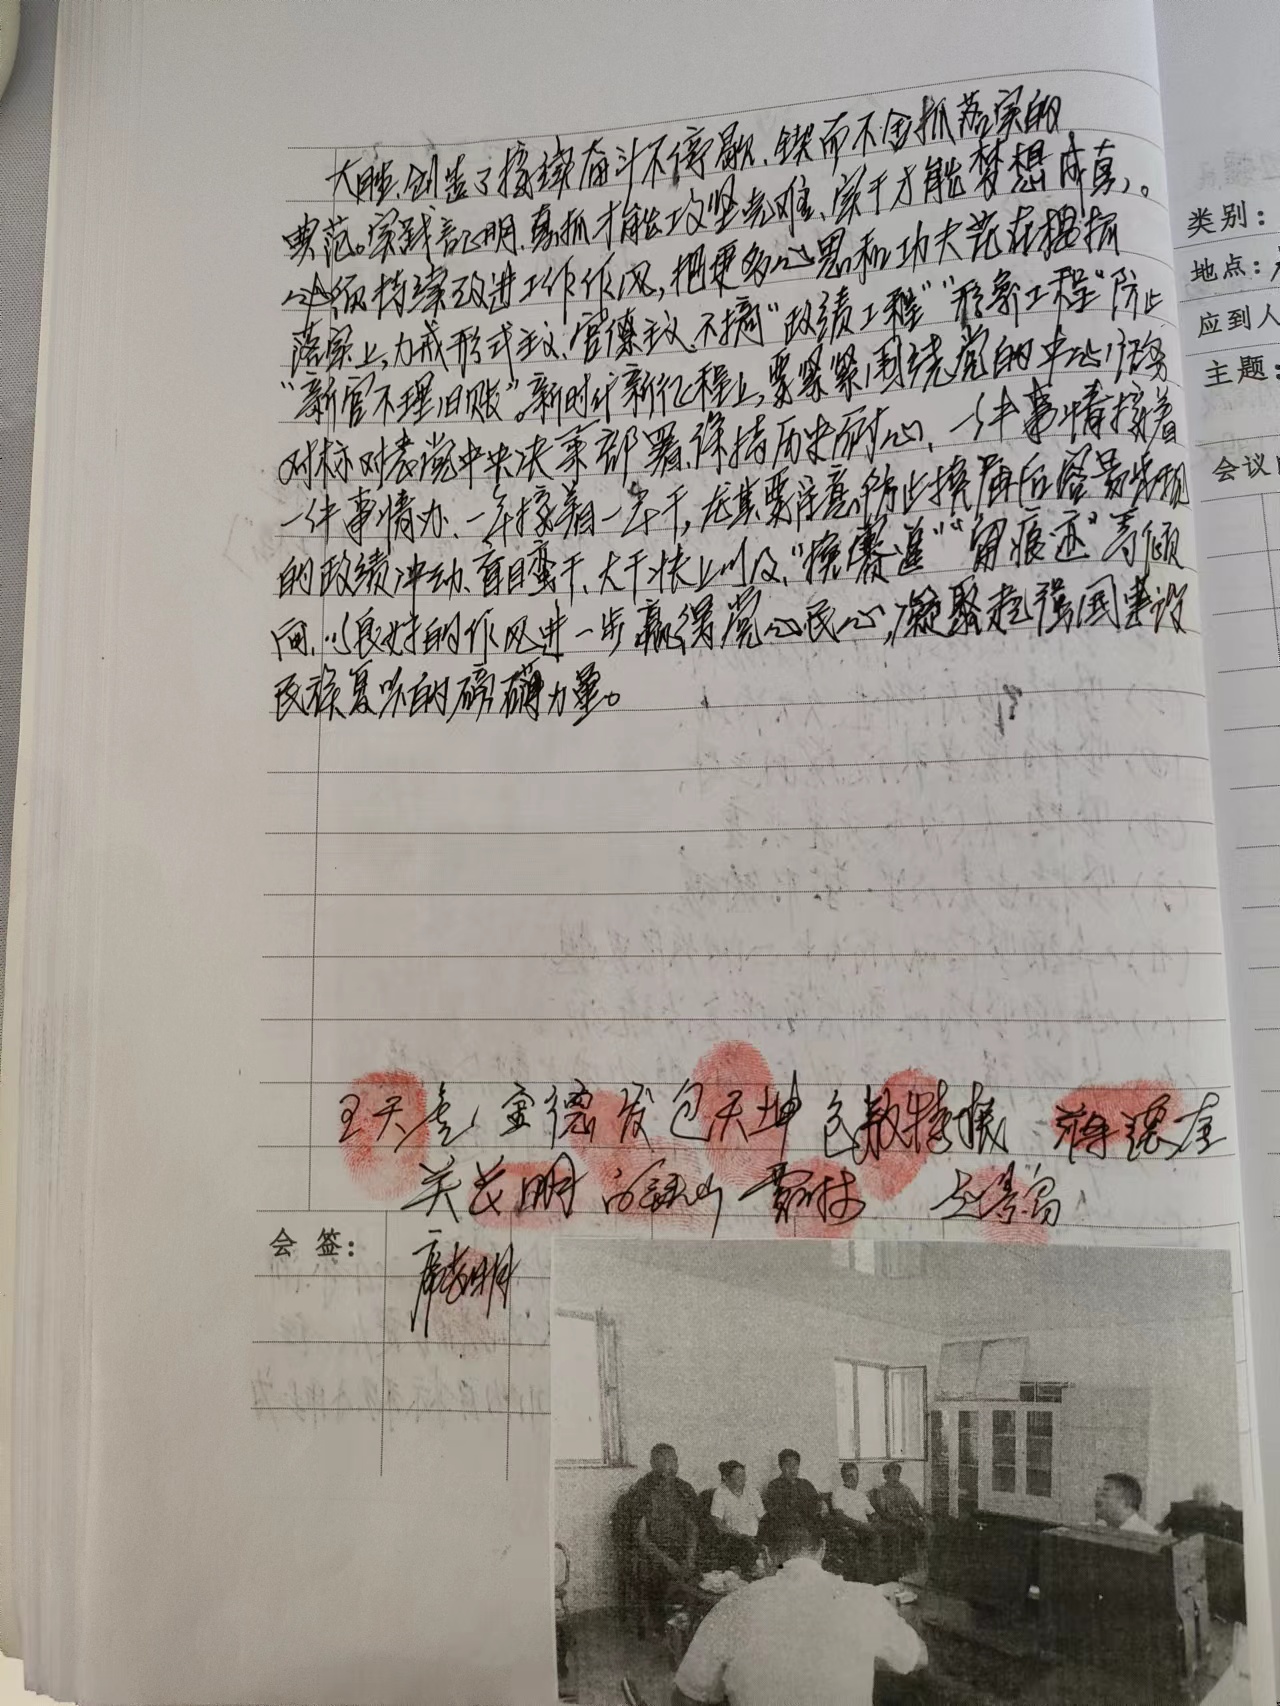 大胜,创造了接续奋斗不停歇、锲而不舍抓落实的
典范。实践证明,真抓才能攻坚克难、实干才能梦想成真。
必须持续改进工作作风,把更多心思和功夫花在狠抓
落实上,力戒形式主义、官僚主义、不搞"政绩工程""形象工程"防止
"新官不理旧账"。新时代新征程上,要紧紧围绕党的中心任务
对标对表党中央决策部署,保持历史耐心、一件事情接着
一件事情办、一年接着一年干,尤其要注意防止换届后容易出现
的政绩冲动、盲目蛮干、大干快上以及"换赛道""留痕迹"等倾
向,以良好的作风进一步赢得党心民心,凝聚起强国建设
民族复兴的磅礴力量。
德发 包天坤
关长明
会 签:
类别:
地点:
应到人
主题:
会议